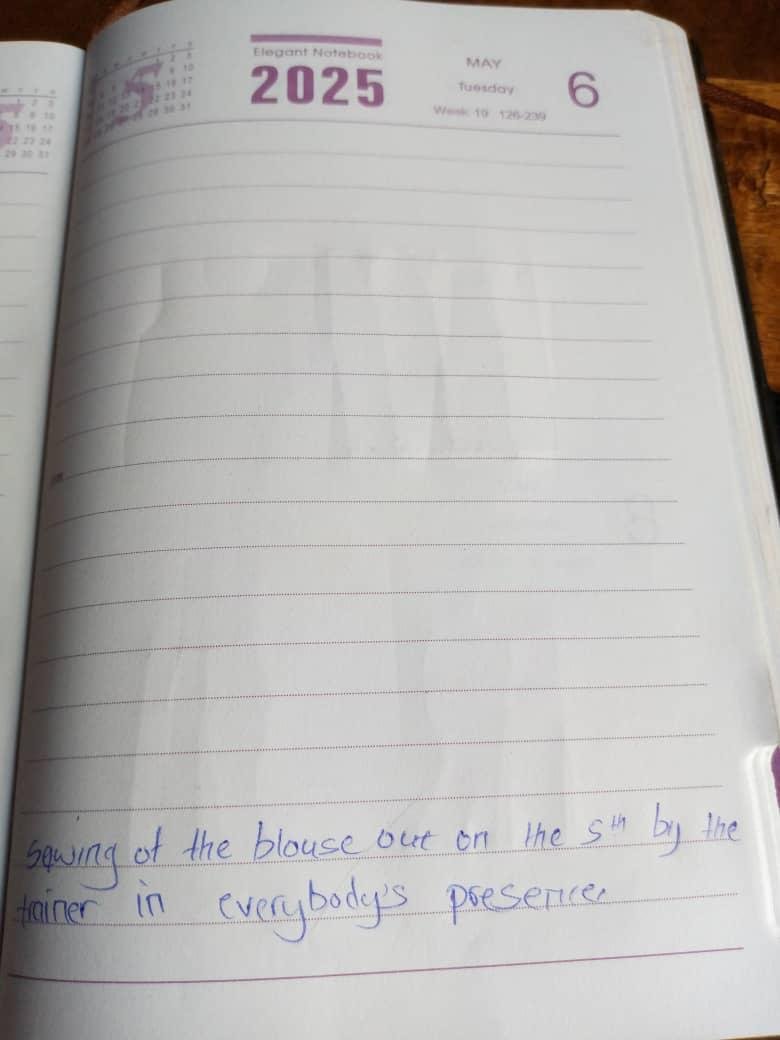 Elegant Notebook
2025
MAY
Tuesday
6
Week 19 126-239
Sewing of the blouse out on the 5th by the
trainer in everybody's presence.